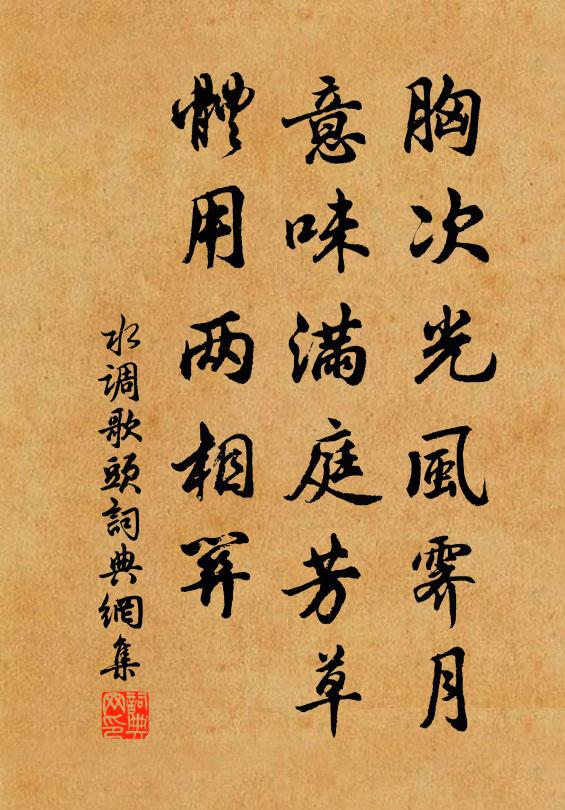 胸次光風霽月
意味滿庭芳草
體用两相關
水調歌頭詞典網集
詞典网印